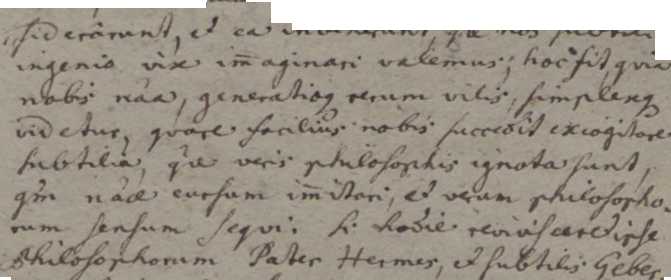 siderârunt, et ea invenerunt, quæ nos subtili
ingenio vix im̄aginari valemus; hoc fit quia
nobis nāa, generatioq rerum vilis, simplexq
videtur, quare facilius nobis succedit exiogitare
subtilia, quæ veris philosophis ignota sunt,
qm̄ nāæ cursum im̄itari, et veram philosopho-
rum sensum sequi: si hodie revivisceret ipse
Philosophorum Pater Hermes, et subtilis Geber